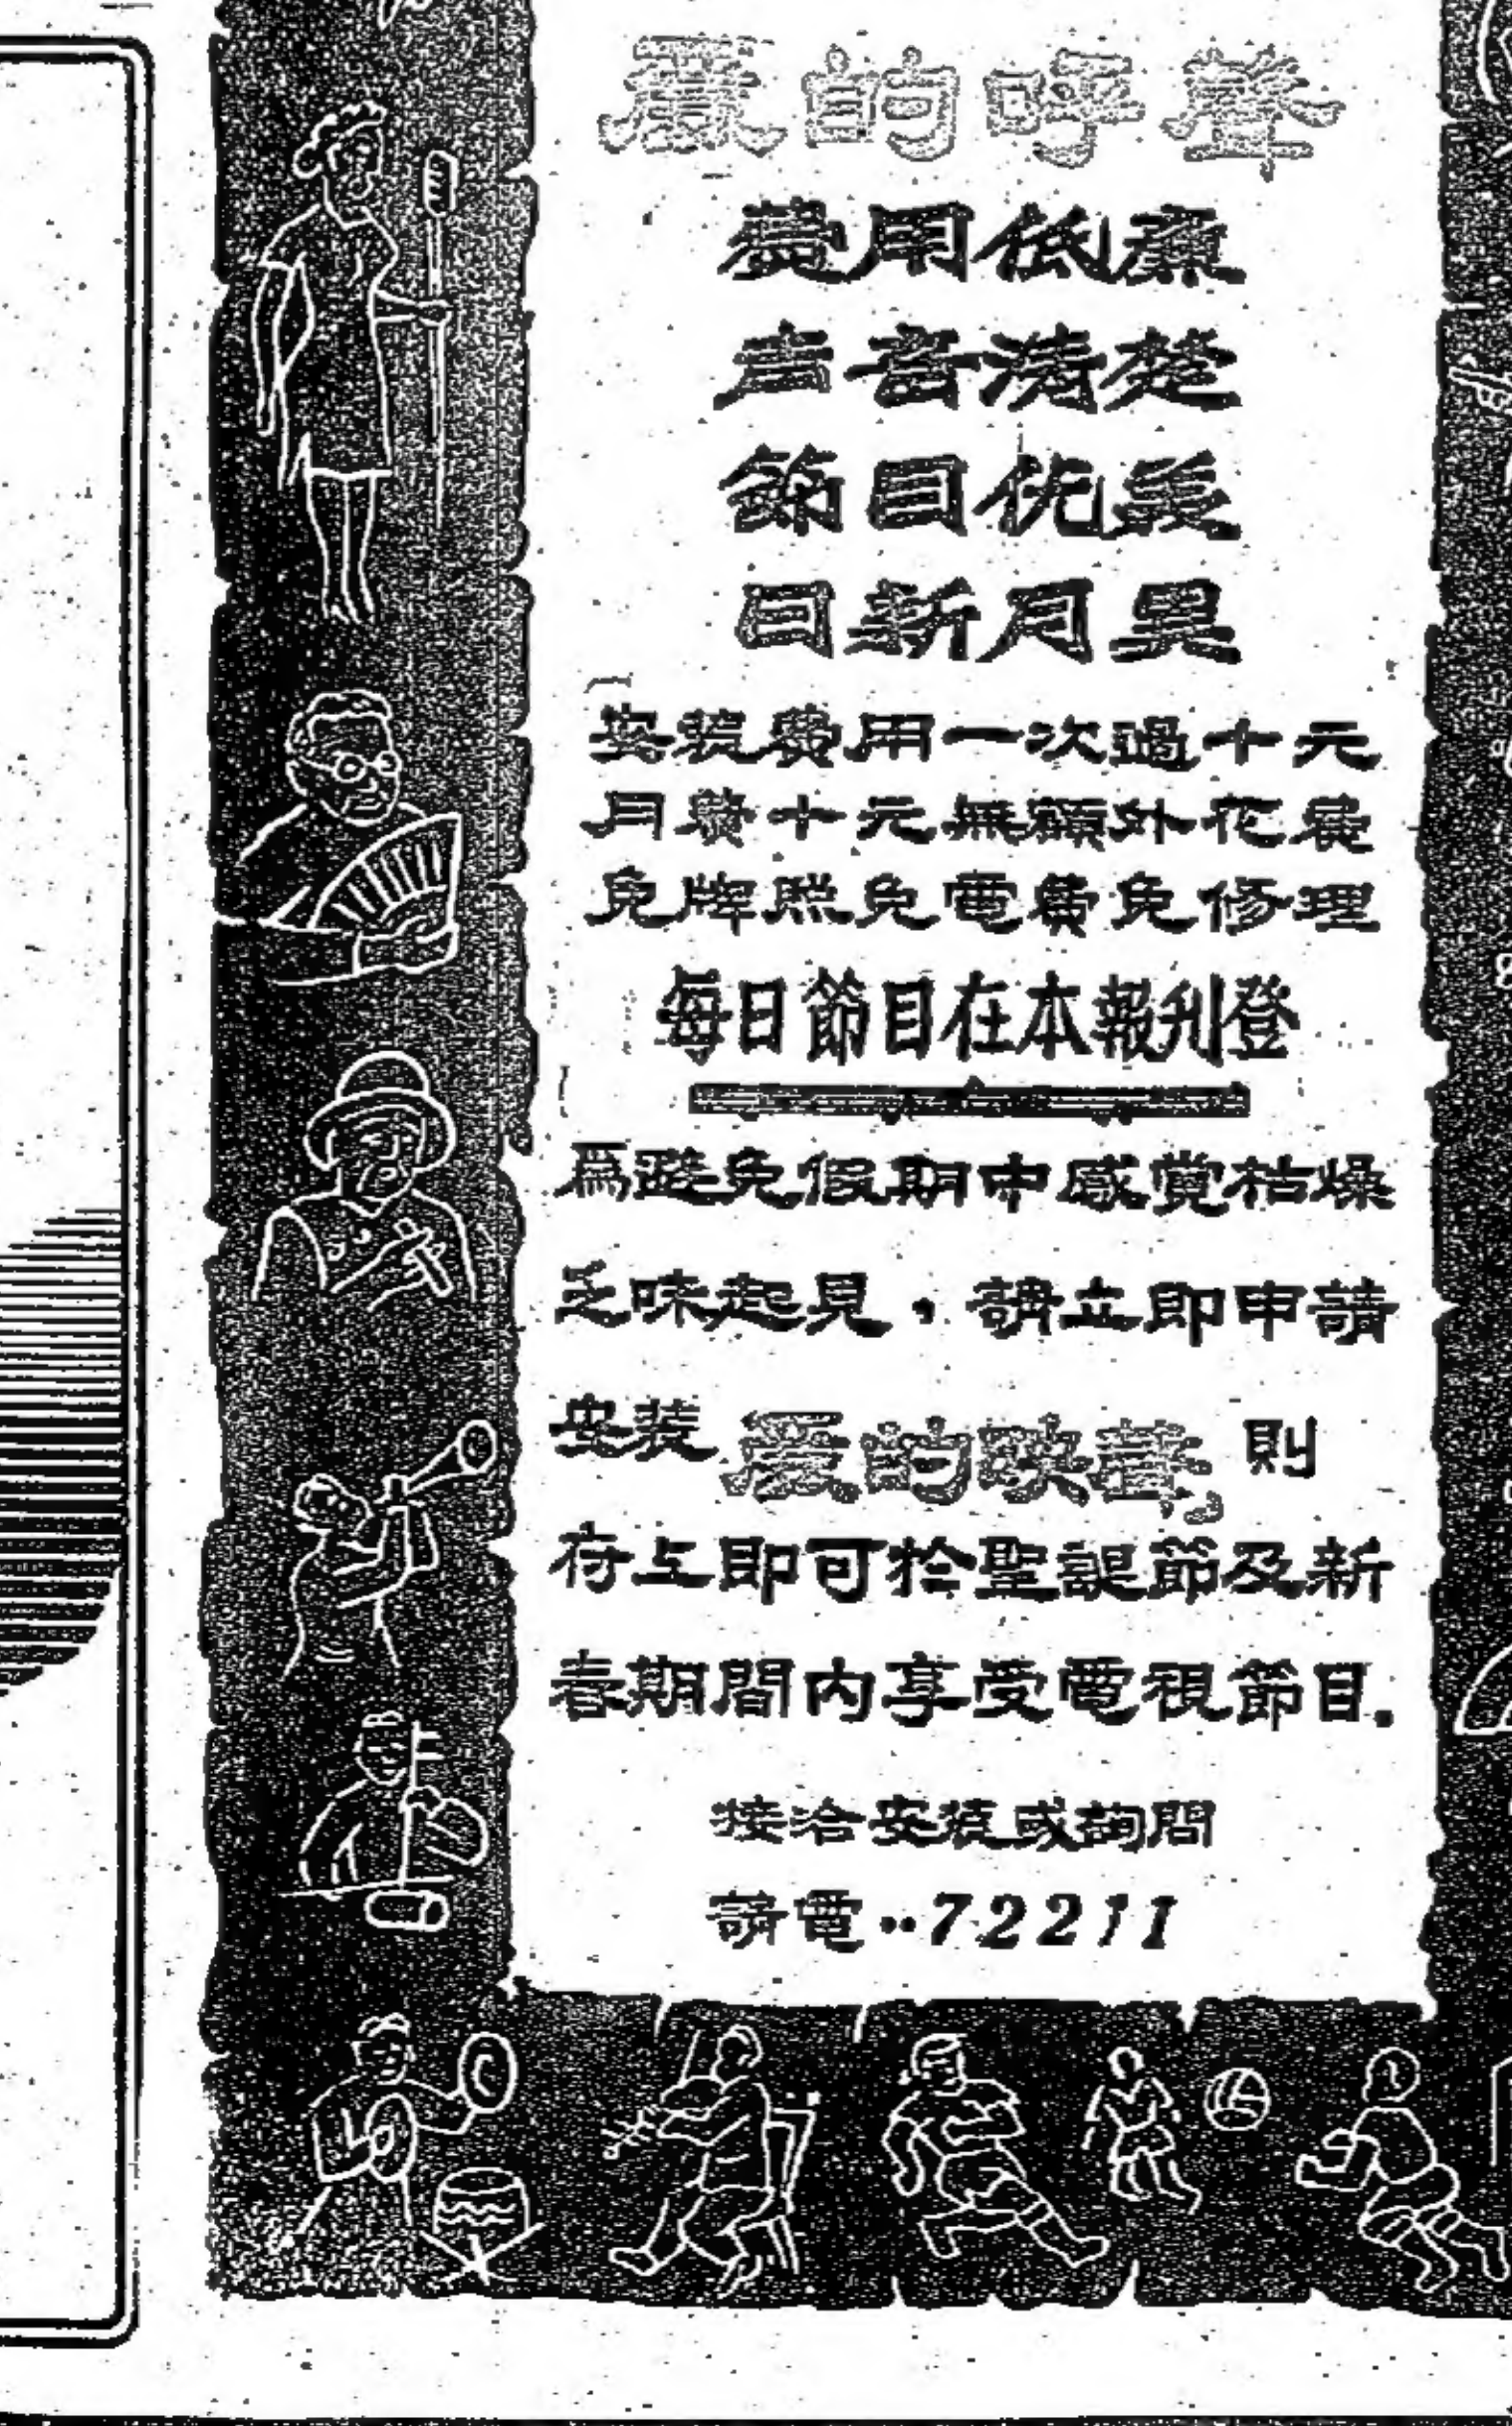 麗的呼聲
費用低廉
声音清楚
節目优美
日新月異
安裝費用一次過十元
月費十元無額外花費
免牌照免電費免修理
每日節目在本報刋登
為避免假期中感覺枯燥
乏味起見，請立即申請
安裝麗的映聲，則
府上即可於聖誕節及新
春期間内享受電視節目.
接洽安裝或詢問
請電：72211